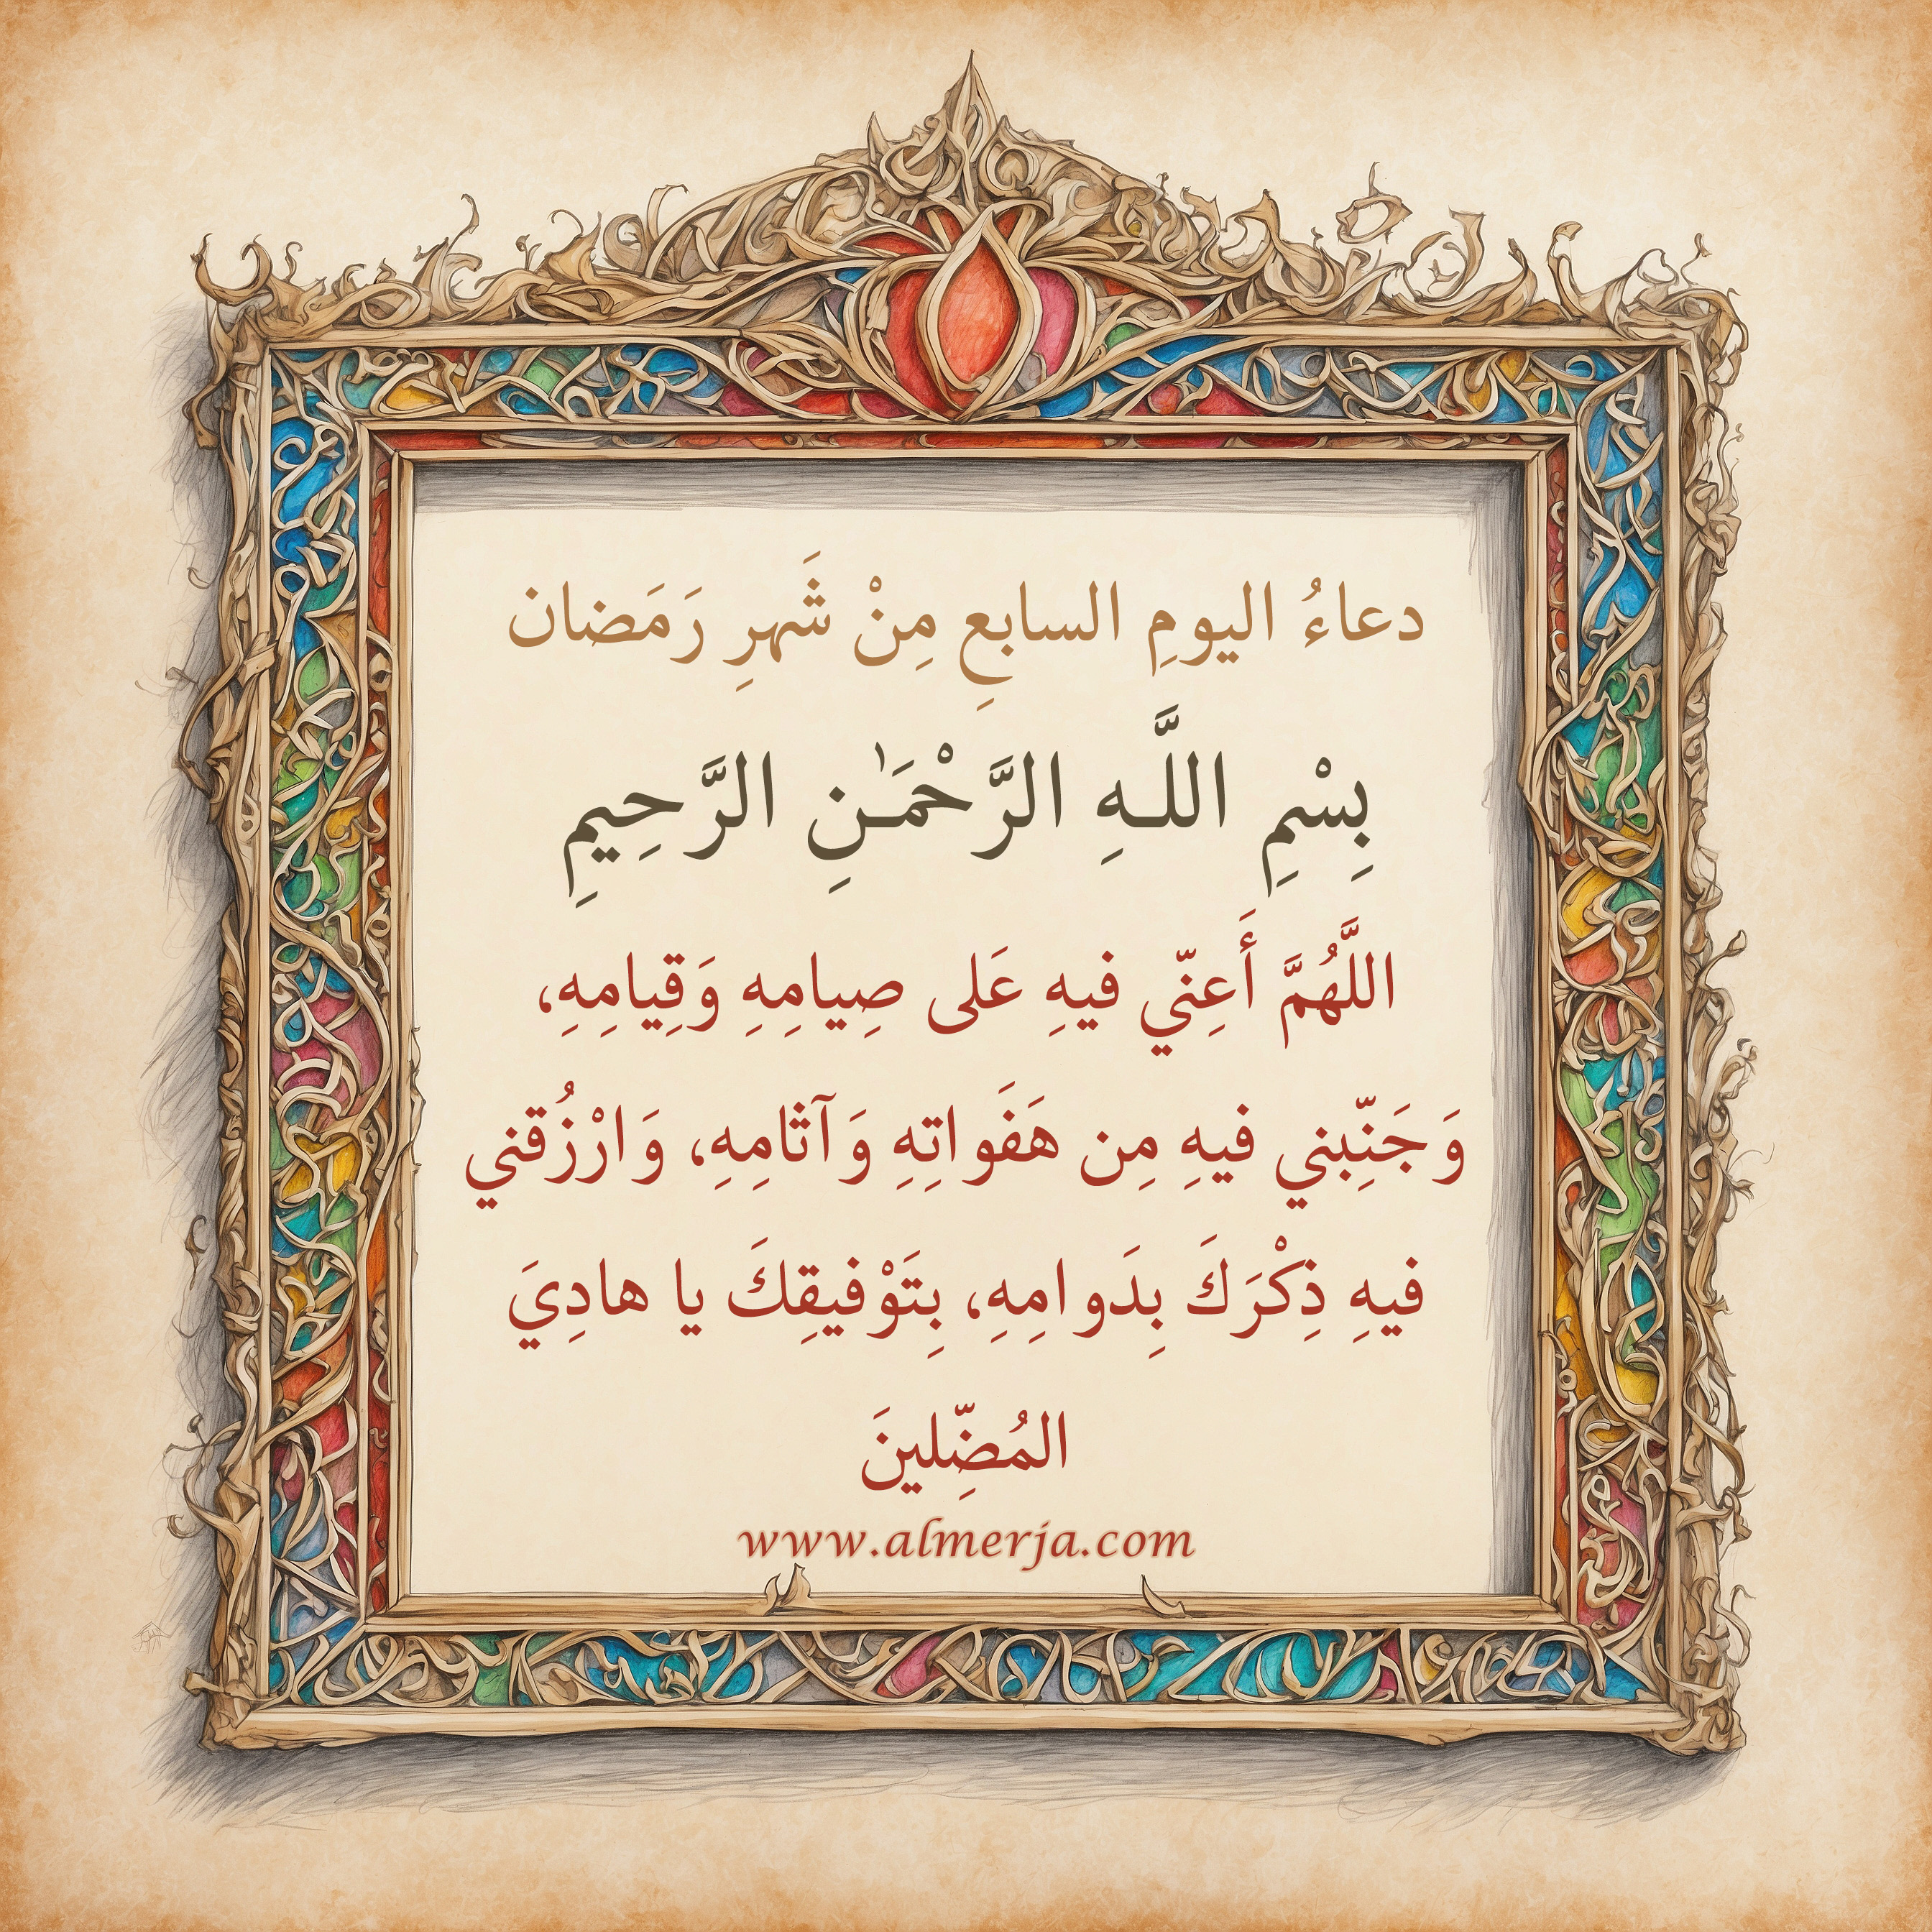 دعاءُ اليومِ السابعِ مِنْ شَهرِ رَمَضان
بِسْمِ اللَّـهِ الرَّحْمَـٰنِ الرَّحِيمِ
اللَّهُمَّ أَعِنّي فيهِ عَلى صِيامِهِ وَقِيامِهِ،
وَجَنِّبني فيهِ مِن هَفَواتِهِ وَآثامِهِ، وَارْزُقني
فيهِ ذِكْرَكَ بِدَوامِهِ، بِتَوْفيقِكَ يا هادِيَ
المُضِّلينَ
www.almerja.com